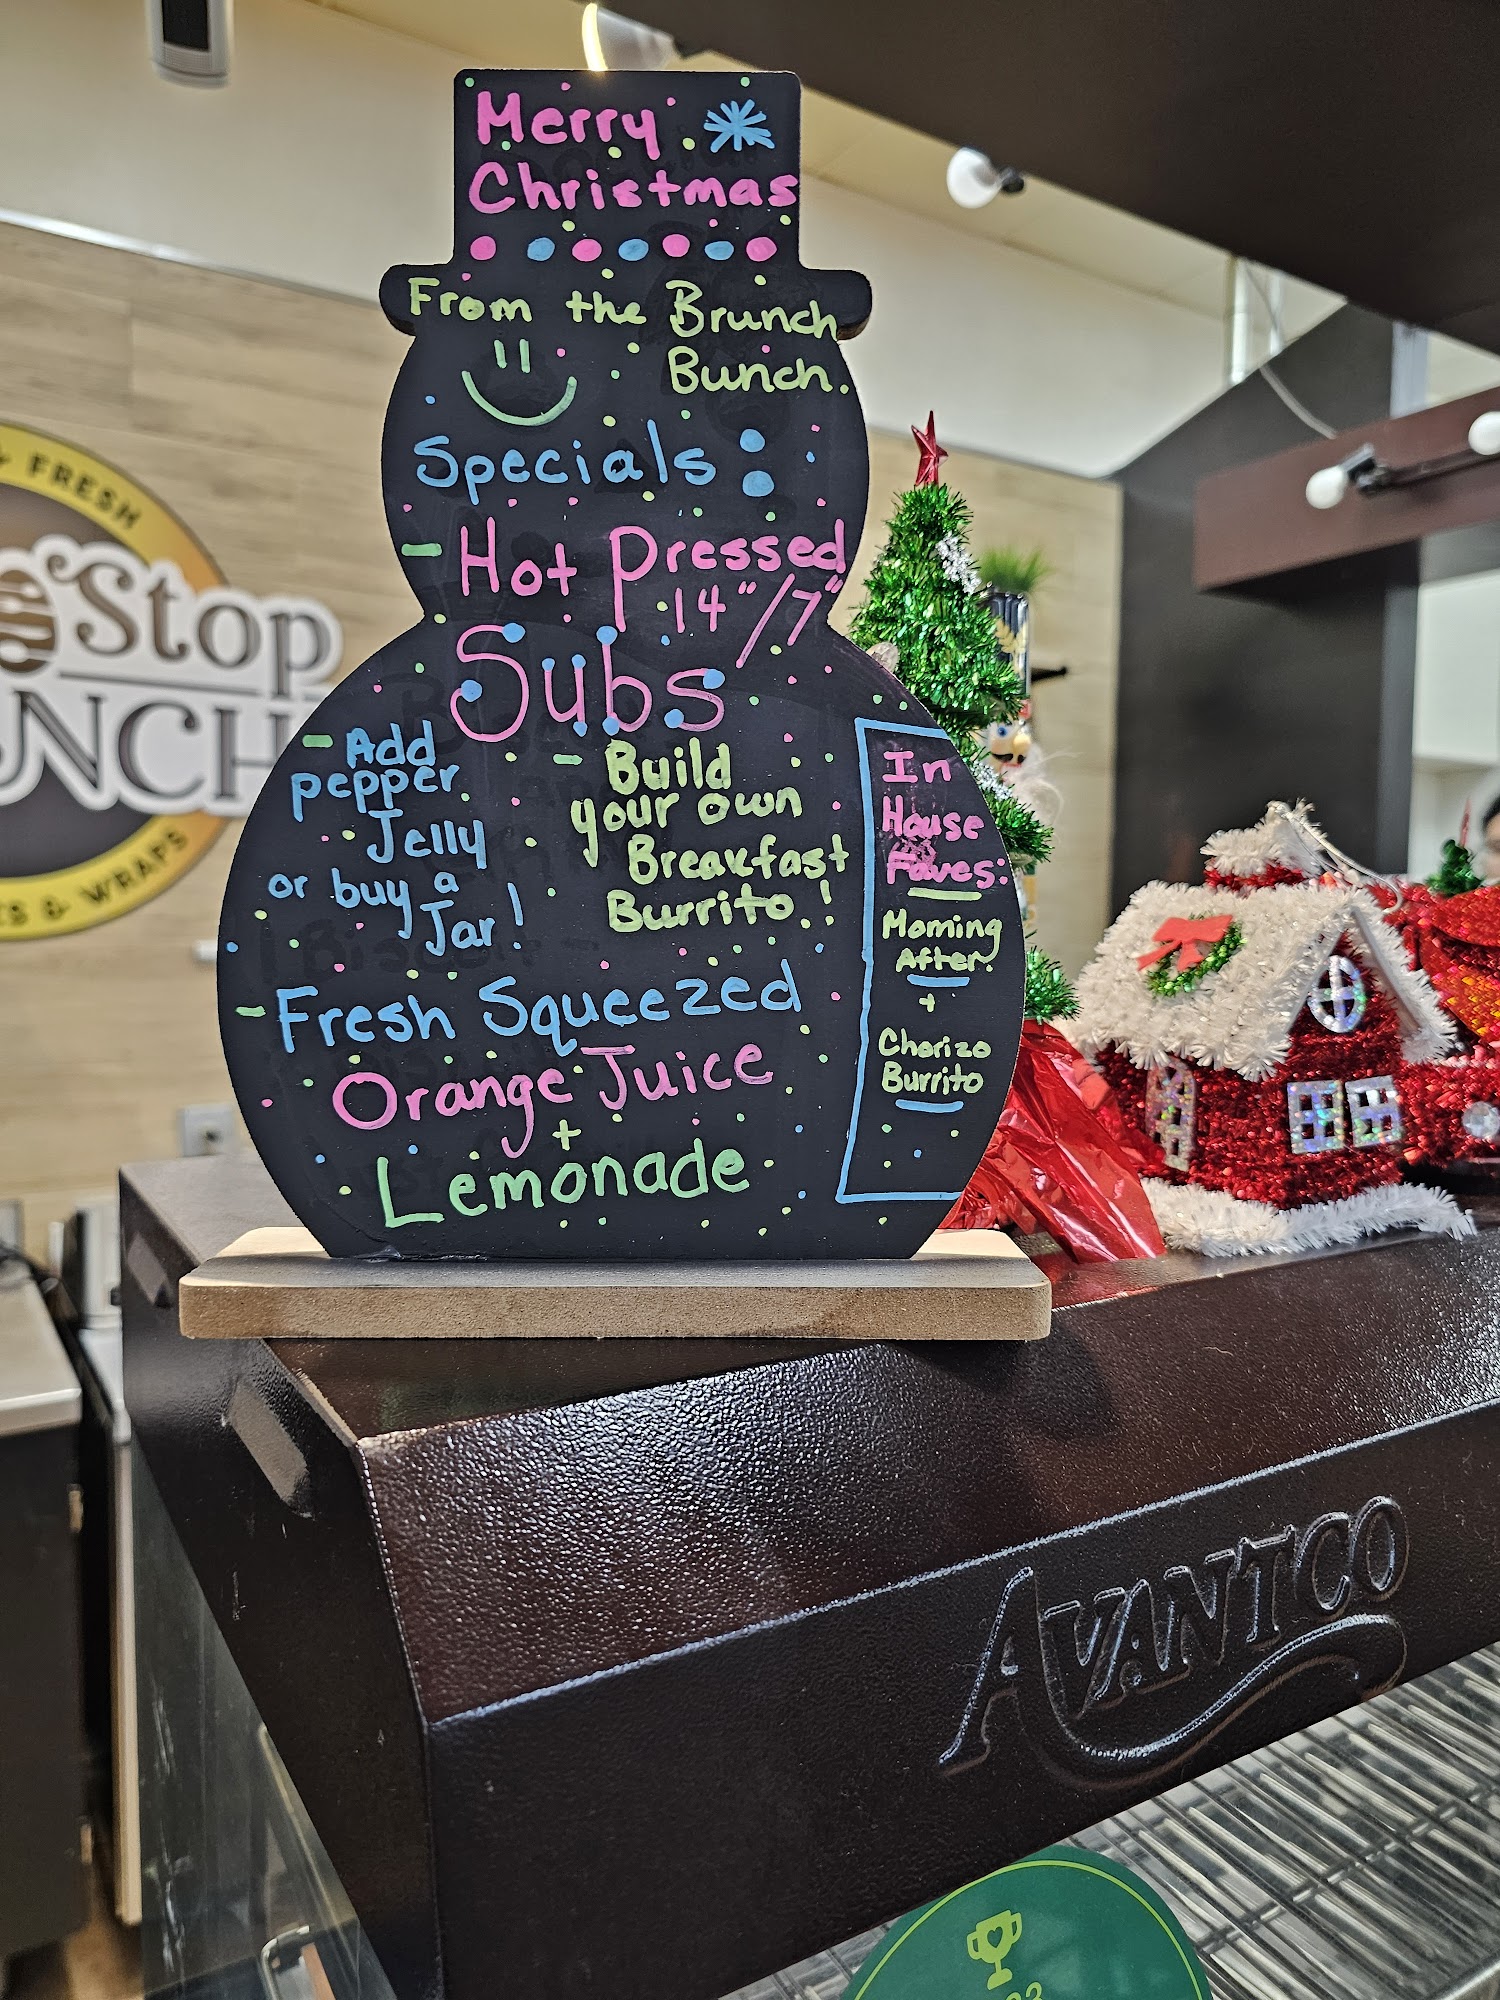 Merry
Christmas
From the Brunch
Bunch.
Specials:
- Hot Pressed
14"/7"
Subs
- Add
pepper
Jelly
or buy a
Jar!
- Build
your own
Breakfast
Burrito!
- Fresh Squeezed
Orange Juice
+
Lemonade
In
House
Faves:
Morning
After
+
Chorizo
Burrito
FRESH
Stop
& WRAPS
AVANTCO